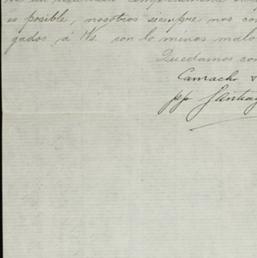 es posible, nosotros siempre nos con
gados, á Vs. son lo menos malo
Quedamos con
Camacho
pp Santiag